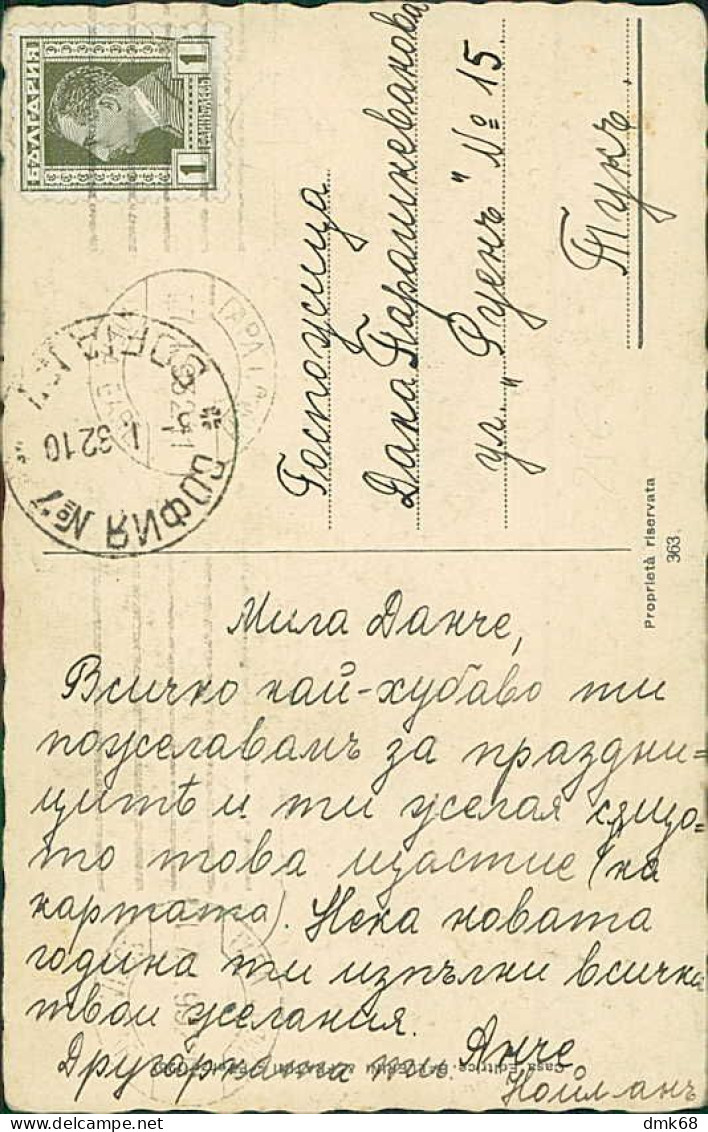 БЪЛГАРИЯ
1
1
СОФИЯ №7
1. 32 10
Госпожица
Дана Парашкеванова
ул. „Руенъ" № 15
Тукъ.
Proprietà riservata
363
Мила Данче,
Всичко най-хубаво ти
пожелавамъ за праздни=
цитѣ и ти желая също=
то това щастие (на
картата). Нека новата
година ти изпълни всички
твои желания.
Другарката ти: Анче
Casa Editrice
dmk68